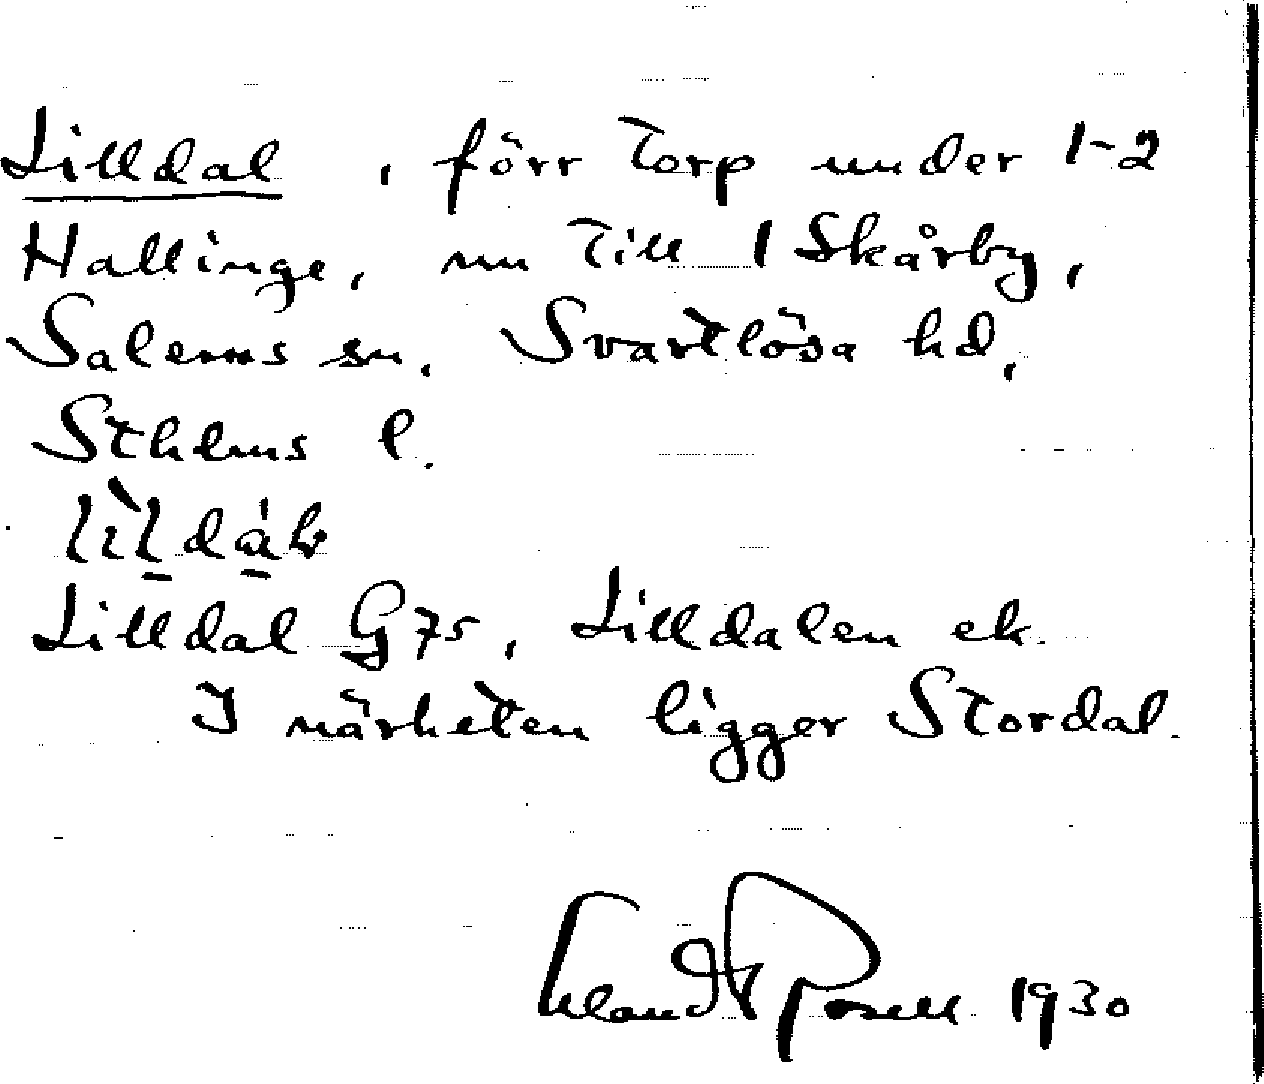 Lilldal, förr torp under 1-2
Hallinge, nu till 1 Skårby,
Salems sn. Svartlösa hd,
Sthlms l.
Lilldal G 75, Lilldalen ek.
I närheten ligger Stordal.
Rosell 1930